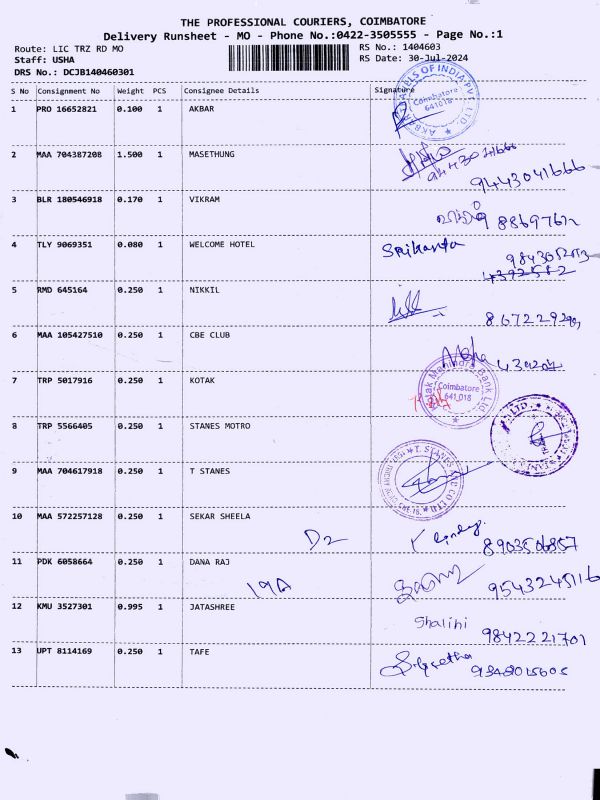 THE PROFESSIONAL COURIERS, COIMBATORE
Delivery Runsheet - MO - Phone No.:0422-3505555 - Page No.:1
Route: LIC TRZ RD MO
RS No.: 1404603
Staff: USHA
RS Date: 30-Jul-2024
DRS No.: DCJB140460301
S No Consignment No Weight PCS Consignee Details Signature
1 PRO 16652821 0.100 1 AKBAR
Coimbatore
641018
2 MAA 704387208 1.500 1 MASETHUNG
9443041666
9443041666
3 BLR 180546918 0.170 1 VIKRAM
4 TLY 9069351 0.080 1 WELCOME HOTEL Srikanta
5 RMD 645164 0.250 1 NIKKIL
6 MAA 105427510 0.250 1 CBE CLUB
7 TRP 5017916 0.250 1 KOTAK
Kotak Mahindra Bank Ltd
Coimbatore
641 018
8 TRP 5566405 0.250 1 STANES MOTRO
9 MAA 704617918 0.250 1 T STANES
10 MAA 572257128 0.250 1 SEKAR SHEELA
D2
8903506857
11 PDK 6058664 0.250 1 DANA RAJ
19A
9543245116
12 KMU 3527301 0.995 1 JATASHREE
Shalini
9842221701
13 UPT 8114169 0.250 1 TAFE